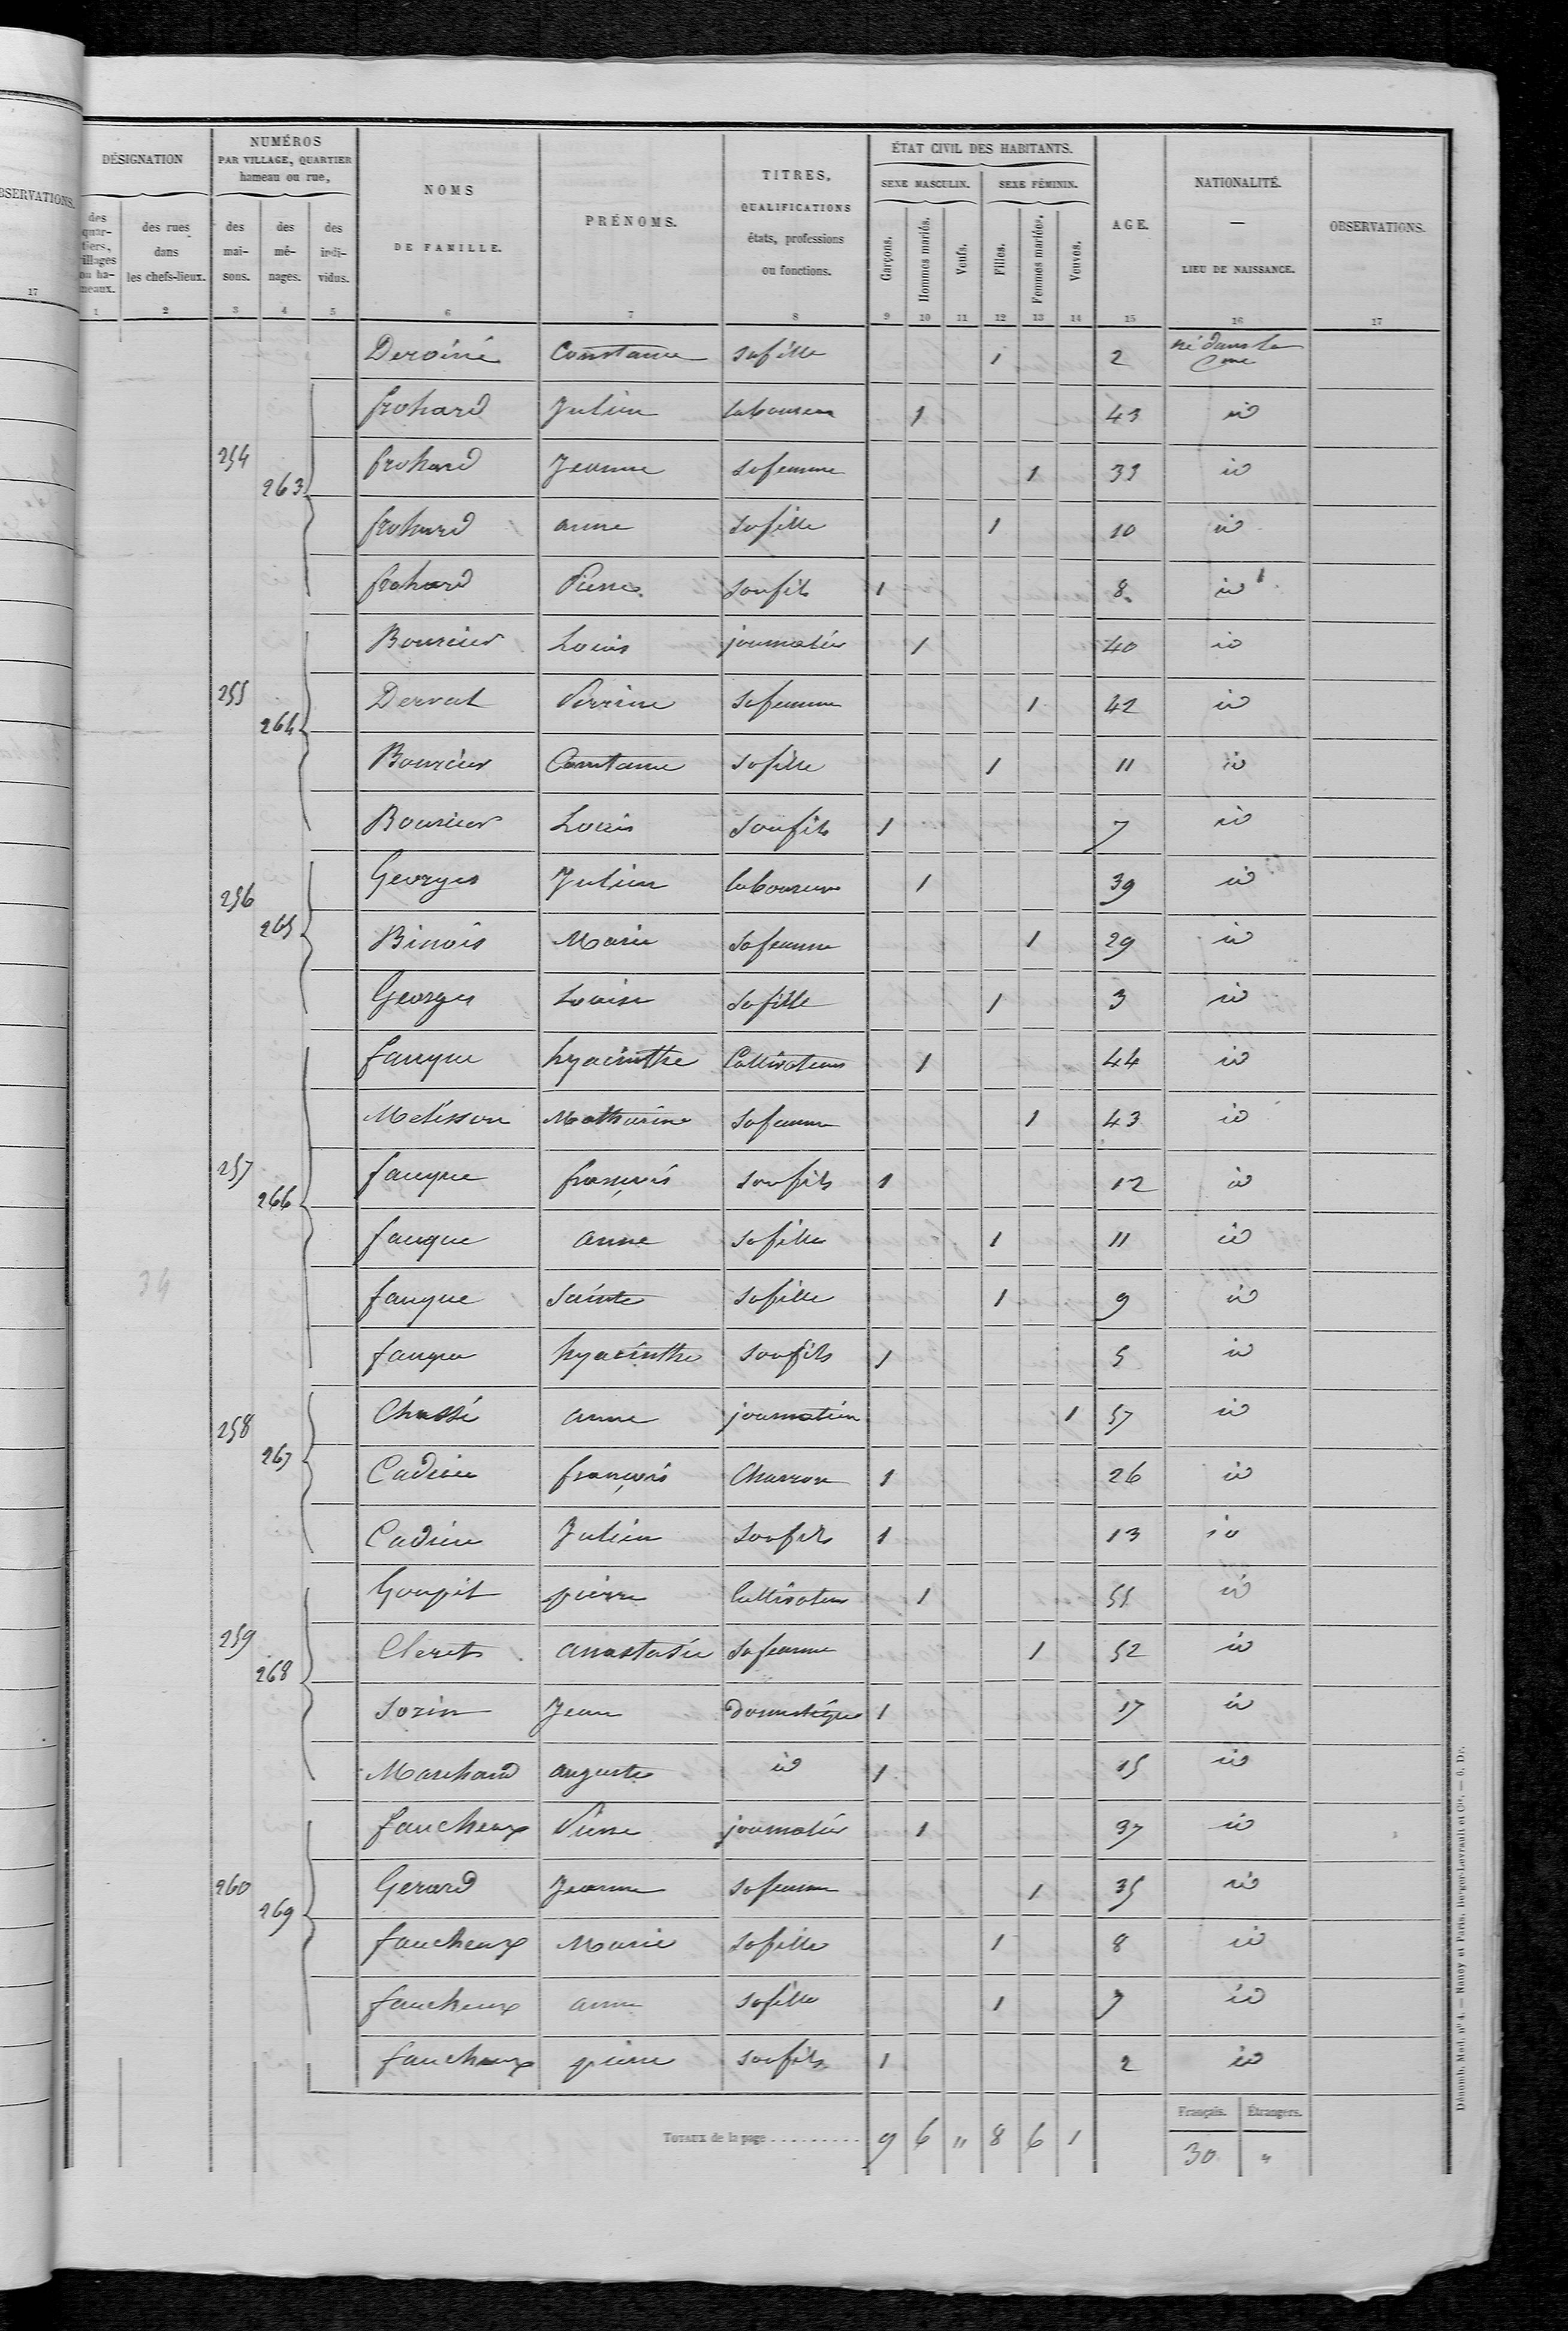 OBSERVATIONS.
17
DÉSIGNATION
NUMÉROS
PAR VILLAGE, QUARTIER
hameau ou rue,
NOMS
DE FAMILLE.
PRÉNOMS.
TITRES,
QUALIFICATIONS
états, professions
ou fonctions.
ÉTAT CIVIL DES HABITANTS.
SEXE MASCULIN. SEXE FÉMININ.
AGE.
NATIONALITÉ.
—
LIEU DE NAISSANCE.
OBSERVATIONS.
des quar-tiers, villages ou ha-meaux.
des rues dans les chefs-lieux.
des mai-sons.
des mé-nages.
des indi-vidus.
Garçons. Hommes mariés. Veufs. Filles. Femmes mariées. Veuves.
1 2 3 4 5 6 7 8 9 10 11 12 13 14 15 16 17
Deroiné Constance sa fille 1 2 né dans la Cne
frohard Julien laboureur 1 43 id
254 263 frohard Jeanne sa femme 1 33 id
frohard anne sa fille 1 10 id
frohard Pierre son fils 1 8 id
Bourcier Louis journalier 1 40 id
255 264 Derval Perrine sa femme 1 42 id
Bourcier Constance sa fille 1 11 id
Bourcier Louis son fils 1 7 id
256 Georges Julien laboureur 1 39 id
265 Binois Marie sa femme 1 29 id
Georges Louise sa fille 1 3 id
fauque hyacinthe Cultivateur 1 44 id
Metisson Mathurine sa femme 1 43 id
257 266 fauque françois son fils 1 12 id
fauque anne sa fille 1 11 id
34
fauque Sainte sa fille 1 9 id
fauque hyacinthe son fils 1 5 id
258 Chassé anne journalière 1 57 id
267 Cadieu françois Charron 1 26 id
Cadieu Julien son fils 1 13 id
Goupil pierre Cultivateur 1 55 id
259 268 Cleret anastasie sa femme 1 52 id
Sorin Jean domestique 1 17 id
Marchand auguste id 1 15 id
faucheux Pierre journalier 1 37 id
260 269 Gerard Jeanne sa femme 1 35 id
faucheux Marie sa fille 1 8 id
faucheux anne sa fille 1 7 id
faucheux pierre son fils 1 2 id
Français. Étrangers.
TOTAUX de la page .......... 9 6 " 8 6 1 30 "
Dénomb. Mod. n° 4. — Nancy et Paris. Berger-Levrault et Cie. — 6. Dr.